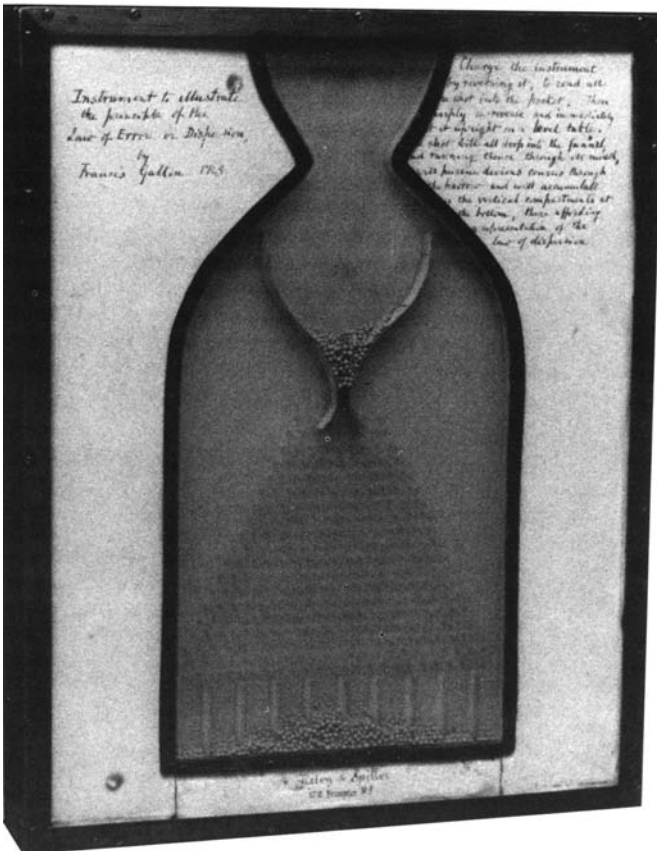 Instrument to illustrate
the principle of the
Law of Error or Dispersion,
by
Francis Galton
Charge the instrument
by reversing it, to send all
shot into the pocket. Then
sharply re-reverse and immediately
set it upright on a level table.
shot will all drop into the funnel,
and running thence through its mouth,
will pursue devious courses through
the harrow and will accumulate
the vertical compartments at
the bottom, there affording
representation of the
law of dispersion